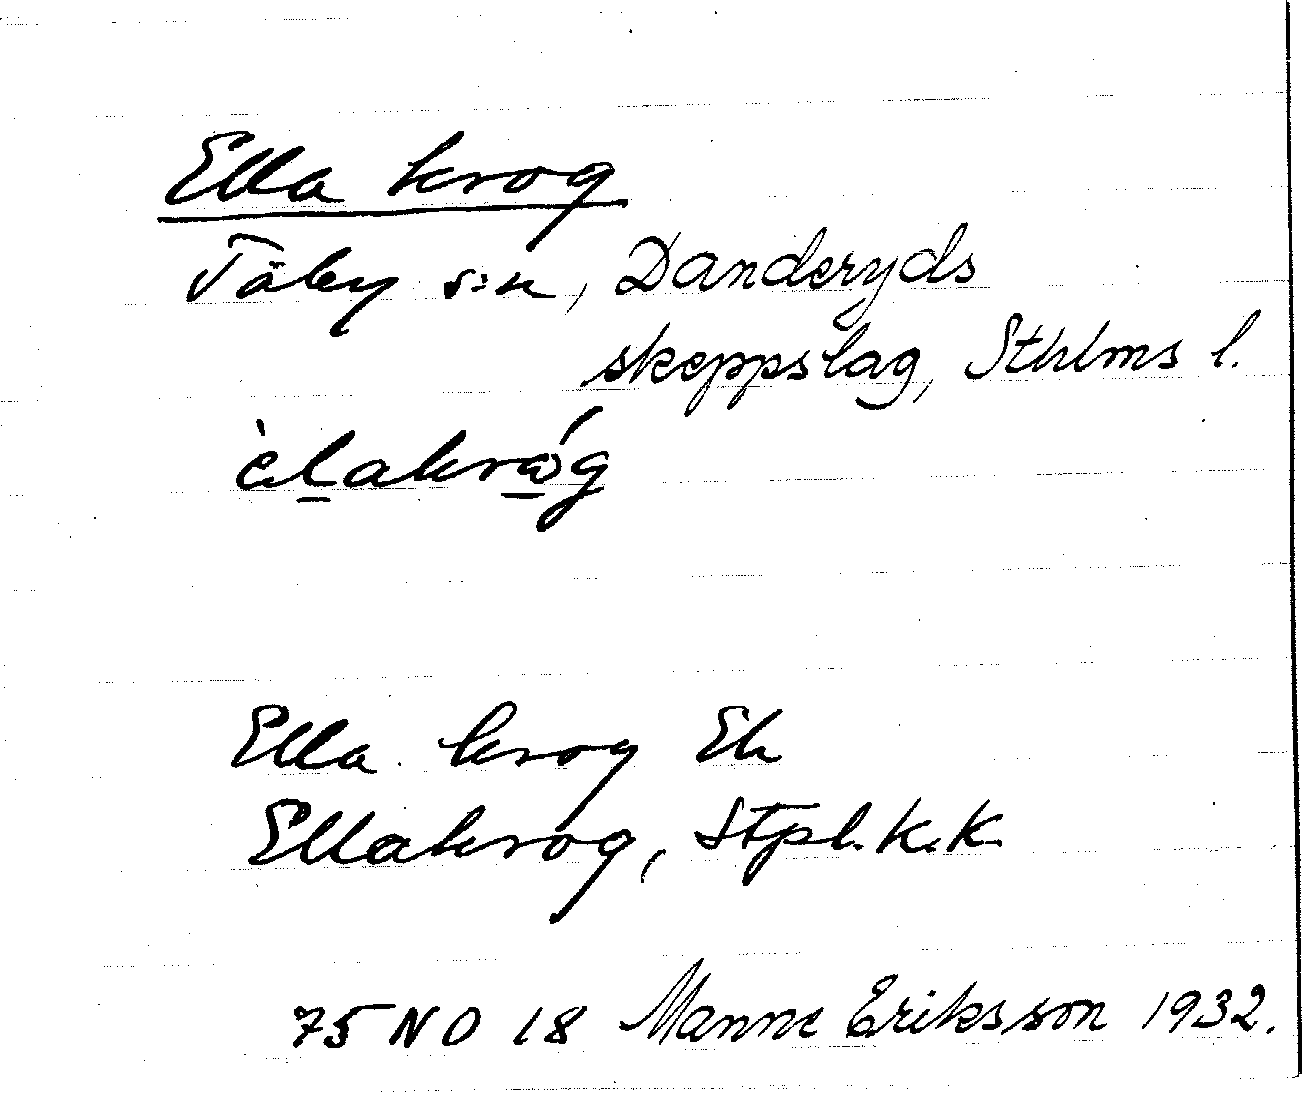 Ella krog
Täby s:n, Danderyds
skeppslag, Sthlms l.
èlakrǿg
Ella krog Ek
Ellakrog, Stpl. K.K.
75 NO 18 Manne Eriksson 1932.